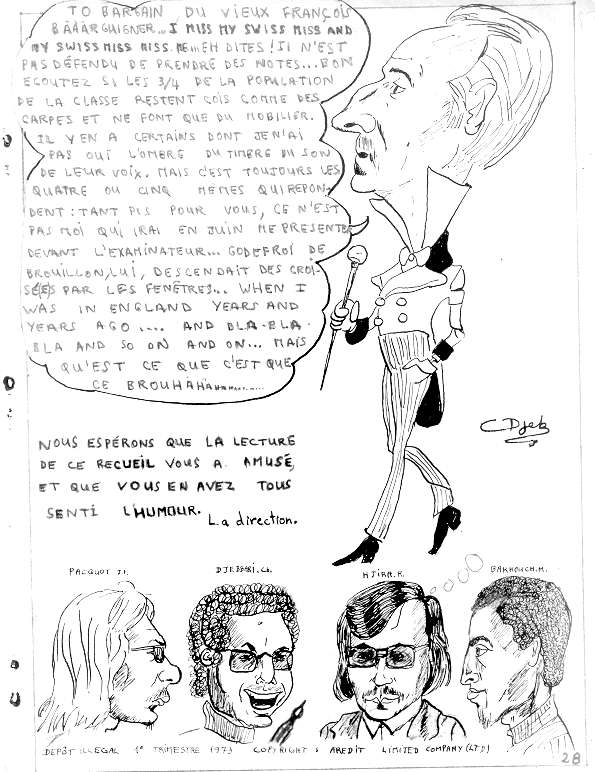 TO BARGAIN DU VIEUX FRANÇOIS
BÂÂÂRGUIGNER... I MISS MY SWISS MISS AND
MY SWISS MISS MISS ME... EH DITES! IL N'EST
PAS DÉFENDU DE PRENDRE DES NOTES... BON
ECOUTEZ SI LES 3/4 DE LA POPULATION
DE LA CLASSE RESTENT COIS COMME DES
CARPES ET NE FONT QUE DU MOBILIER.
IL Y EN A CERTAINS DONT JE N'AI
PAS OUI L'OMBRE DU TIMBRE DU SON
DE LEUR VOIX. MAIS C'EST TOUJOURS LES
QUATRE OU CINQ MEMES QUI REPON-
DENT: TANT PIS POUR VOUS, CE N'EST
PAS MOI QUI IRAI EN JUIN ME PRESENTER
DEVANT L'EXAMINATEUR... GODEFROI DE
BROUILLON, LUI, DESCENDAIT DES CROI-
SÉ(E)S PAR LES FENÊTRES... WHEN I
WAS IN ENGLAND YEARS AND
YEARS AGO .... AND BLA-BLA-
BLA AND SO ON AND ON... MAIS
QU'EST CE QUE C'EST QUE
CE BROUHAHA
C Djeb
NOUS ESPÉRONS QUE LA LECTURE
DE CE RECUEIL VOUS A AMUSÉ,
ET QUE VOUS EN AVEZ TOUS
SENTI L'HUMOUR.
La direction.
PACQUOT J.F. DJEBBARI.Ch. HJIRA.K. BAKHOUCH.M.
DEPÔT ILLÉGAL 1er TRIMESTRE 1973 COPYRIGHT: AREDIT LIMITED COMPANY (LTD)
28